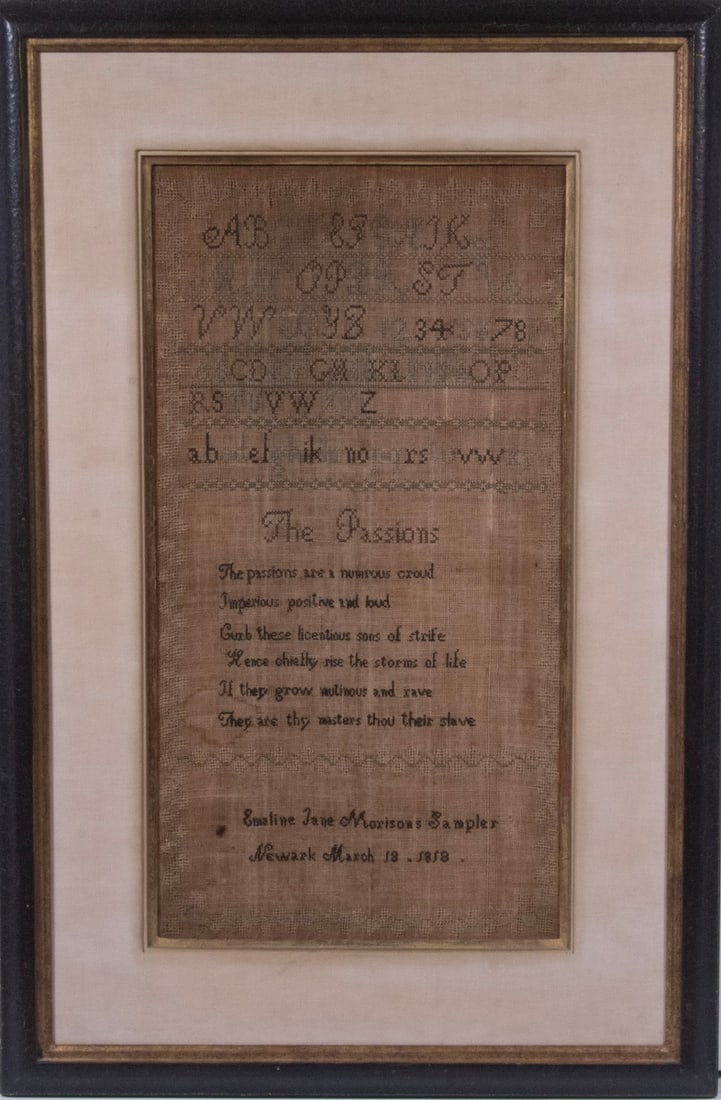 AB EF IK
OP ST
VW YZ 2 34 78
CD GH KL OP
RS VW Z
ab def ik no rs vw
The Passions
The passions are a numrous croud
Imperious positive and loud
Curb these licentious sons of strife
Hence chiefly rise the storms of life
If they grow mutinous and rave
They are thy masters thou their slave
Emaline Jane Morisons Sampler
Newark March 18 . 1818 .